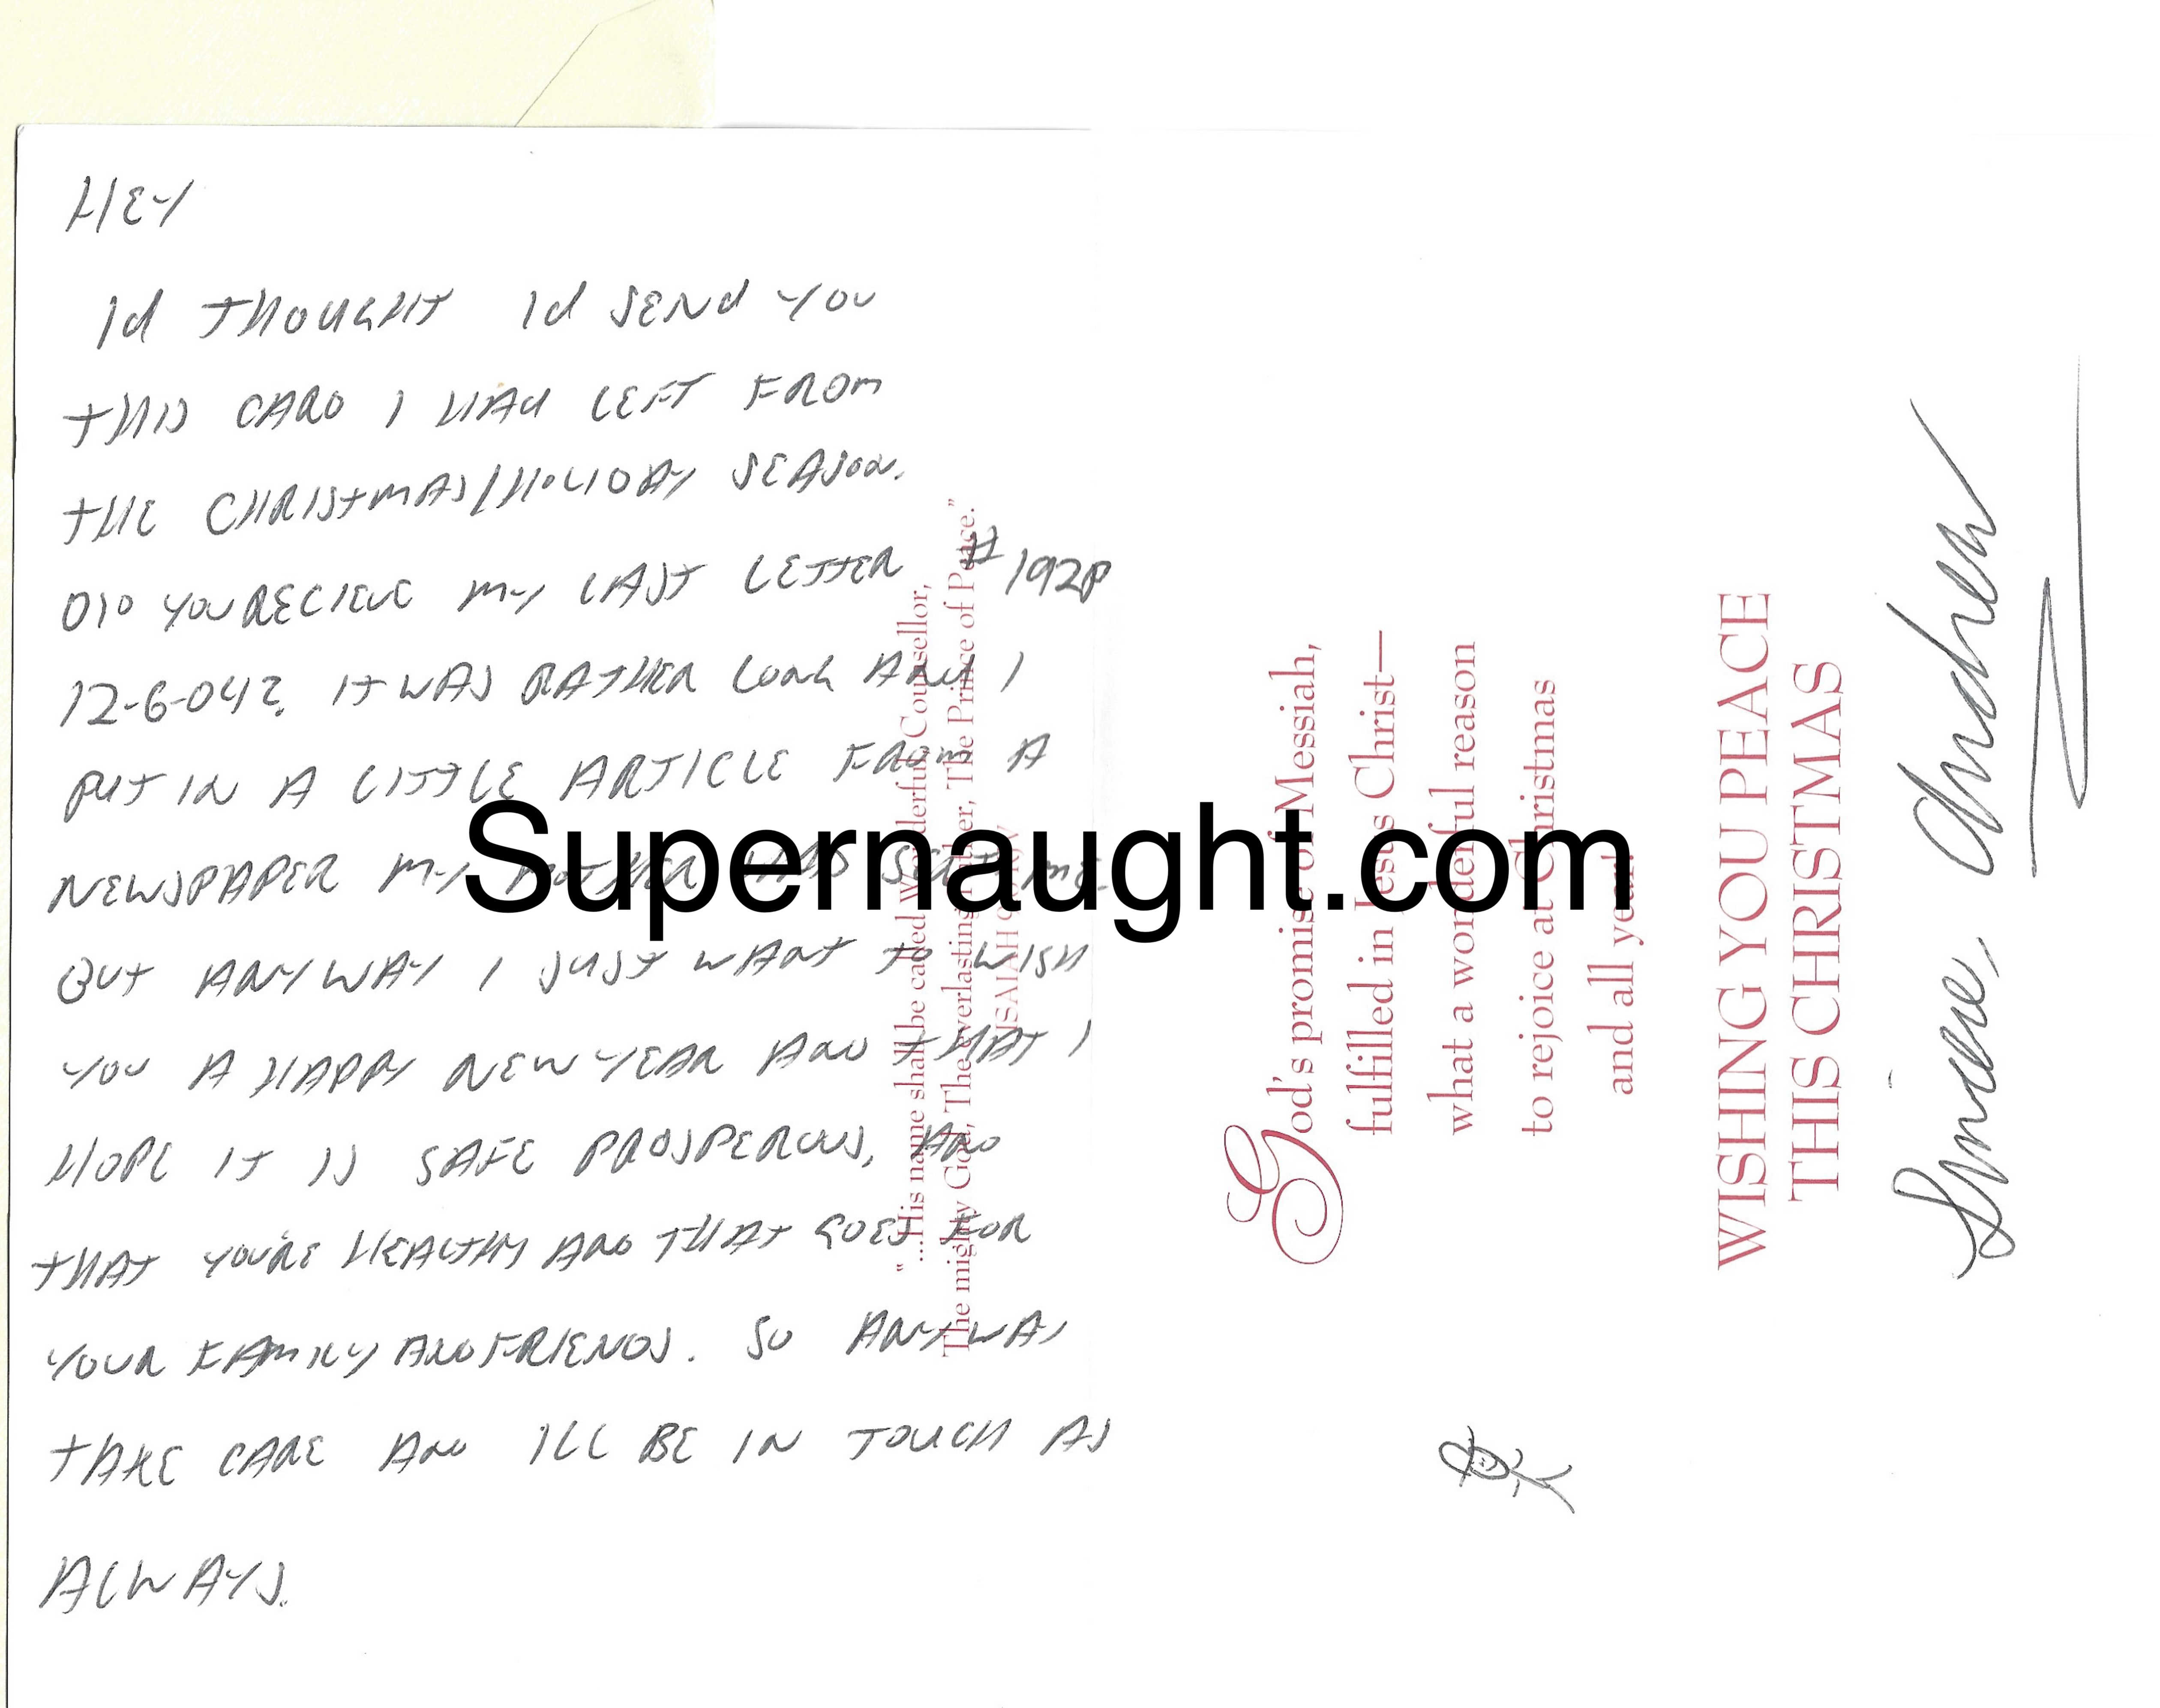 HEY
Id THOUGHT Id SEND YOU
THIS CARD I HAd LEFT FROM
THE CHRISTMAS/HOLIDAY SEASON.
DID YOU RECIEVE MY LAST LETTER #192P
12-6-04? IT WAS RATHER LONG ANd I
PUT IN A LITTLE ARTICLE FROM A
NEWSPAPER MY MOTHER HAD SENT ME.
BUT ANYWAY I JUST WANT TO WISH
YOU A HAPPY NEW YEAR AND THAT I
HOPE IT IS SAFE PROSPEROUS, AND
THAT YOU'RE HEALTHY AND THAT GOES FOR
YOUR FAMILY AND FRIENDS. SO ANYWAY
TAKE CARE AND ILL BE IN TOUCH AS
ALWAYS.
"...His name shall be called Wonderful, Counsellor,
The mighty God, The everlasting Father, The Prince of Peace."
ISAIAH
God's promise of Messiah,
fulfilled in Jesus Christ—
what a wonderful reason
to rejoice at Christmas
and all year.
WISHING YOU PEACE
THIS CHRISTMAS
Sincere, Andrew
Supernaught.com